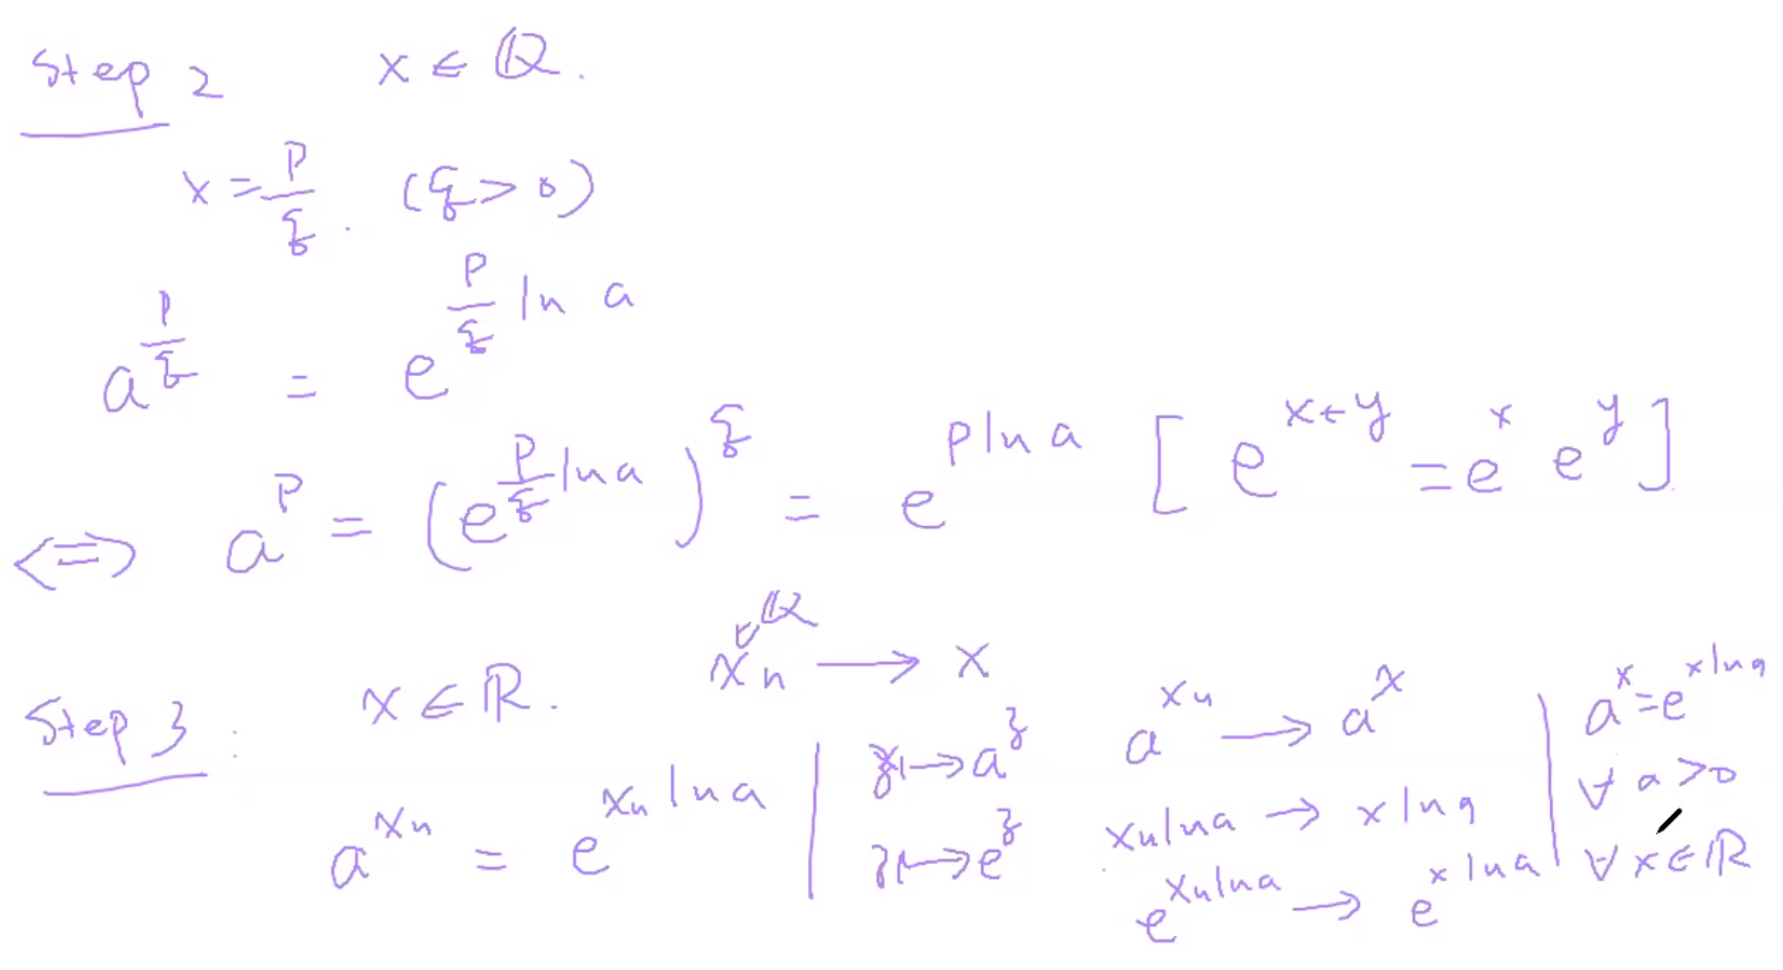 Step 2 x ∈ ℚ.
x = p/q. (q > 0)
a^{p/q} = e^{p/q ln a}
⟺ a^p = (e^{p/q ln a})^q = e^{p ln a} [e^{x+y} = e^x e^y]
Step 3: x ∈ ℝ. ℚ ∋ x_n ⟶ x
a^{x_n} = e^{x_n ln a}
z ⟼ a^z
z ⟼ e^z
a^{x_n} ⟶ a^x
x_n ln a ⟶ x ln a
e^{x_n ln a} ⟶ e^{x ln a}
a^x = e^{x ln a}
∀ a > 0
∀ x ∈ ℝ